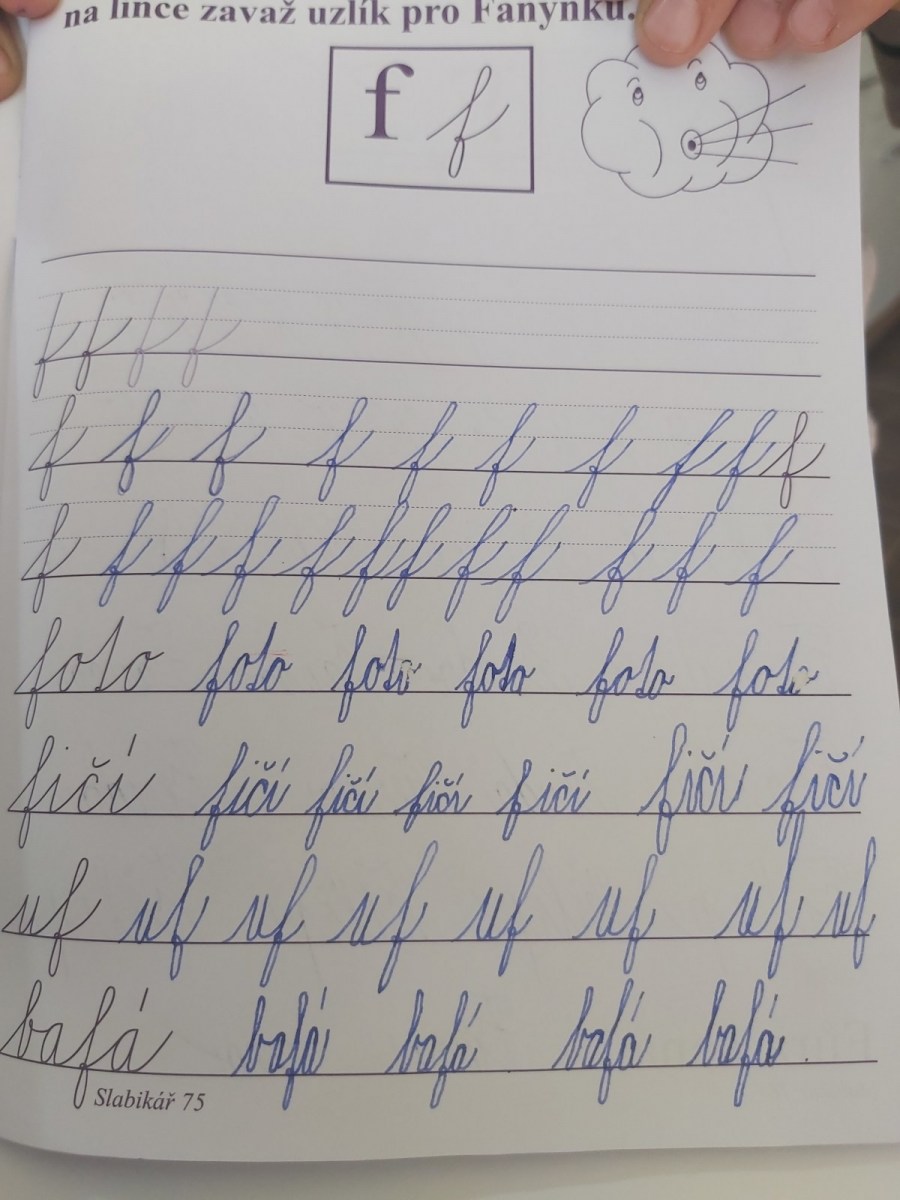 na lince zavaž uzlík pro Fanynku.
f f
f f f f
f f f f f f f f f f
f f f f f f f f f f f f
foto foto foto foto foto foto
fičí fičí fičí fičí fičí fičí fičí
uf uf uf uf uf uf uf uf
bafá bafá bafá bafá bafá
Slabikář 75